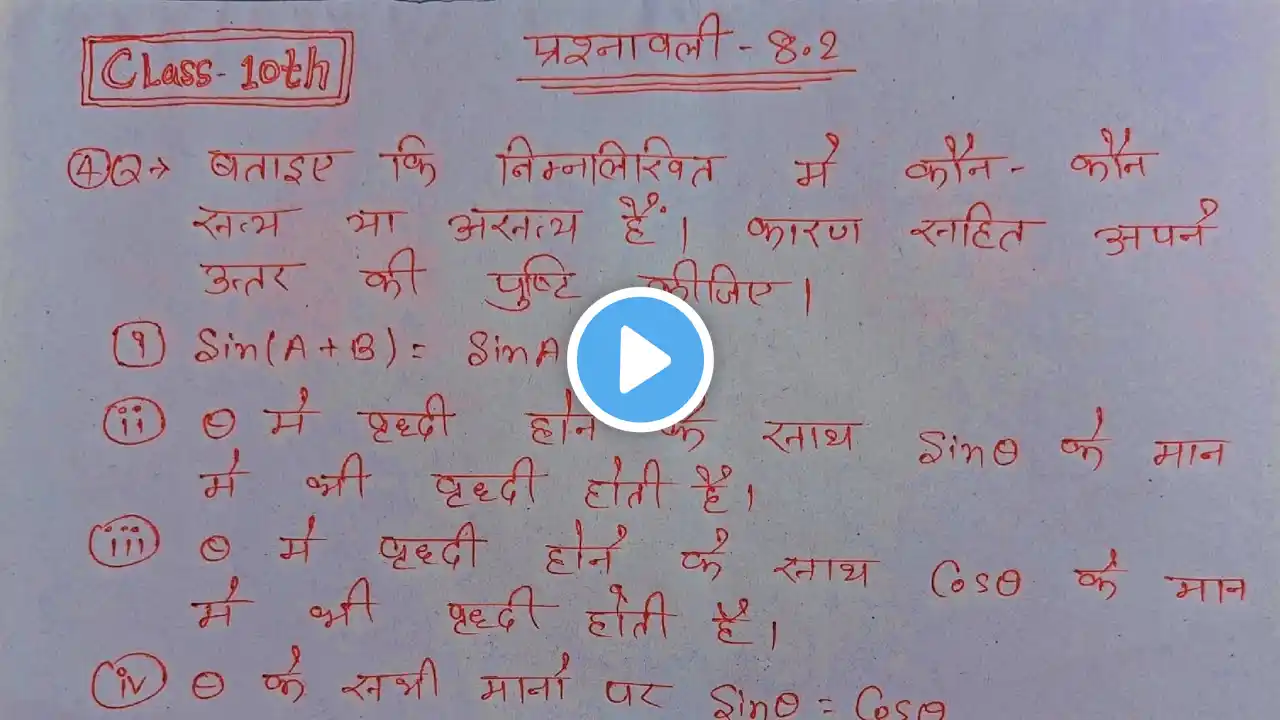 Class-10th
प्रश्नावली - 8.2
④Q→ बताइए कि निम्नलिखित मे कौन - कौन
सत्य या असत्य हैं। कारण सहित अपने
उत्तर की पुष्टि कीजिए।
① Sin(A+B) = SinA
ii θ मे वृध्दी होने के साथ Sinθ के मान
मे भी वृध्दी होती है।
iii θ मे वृध्दी होने के साथ Cosθ के मान
मे भी वृध्दी होती है।
iv θ के सभी मानो पर Sinθ = Cosθ